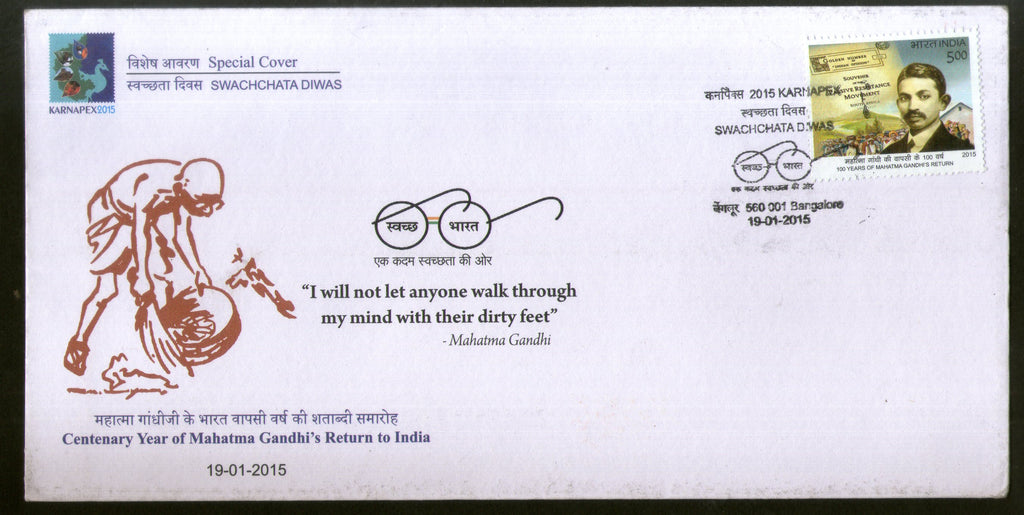 KARNAPEX2015
विशेष आवरण Special Cover
स्वच्छता दिवस SWACHCHATA DIWAS
कर्नापेक्स 2015 KARNAPEX
स्वच्छता दिवस
SWACHCHATA DIWAS
स्वच्छ भारत
एक कदम स्वच्छता की ओर
बेंगलूर 560 001 Bangalore
19-01-2015
भारत INDIA
500
GOLDEN NUMBER
"INDIAN OPINION"
SOUVENIR
OF THE
PASSIVE RESISTANCE
MOVEMENT
SOUTH AFRICA
महात्मा गांधी की वापसी के 100 वर्ष 2015
100 YEARS OF MAHATMA GANDHI'S RETURN
स्वच्छ भारत
एक कदम स्वच्छता की ओर
“I will not let anyone walk through
my mind with their dirty feet”
- Mahatma Gandhi
महात्मा गांधीजी के भारत वापसी वर्ष की शताब्दी समारोह
Centenary Year of Mahatma Gandhi's Return to India
19-01-2015